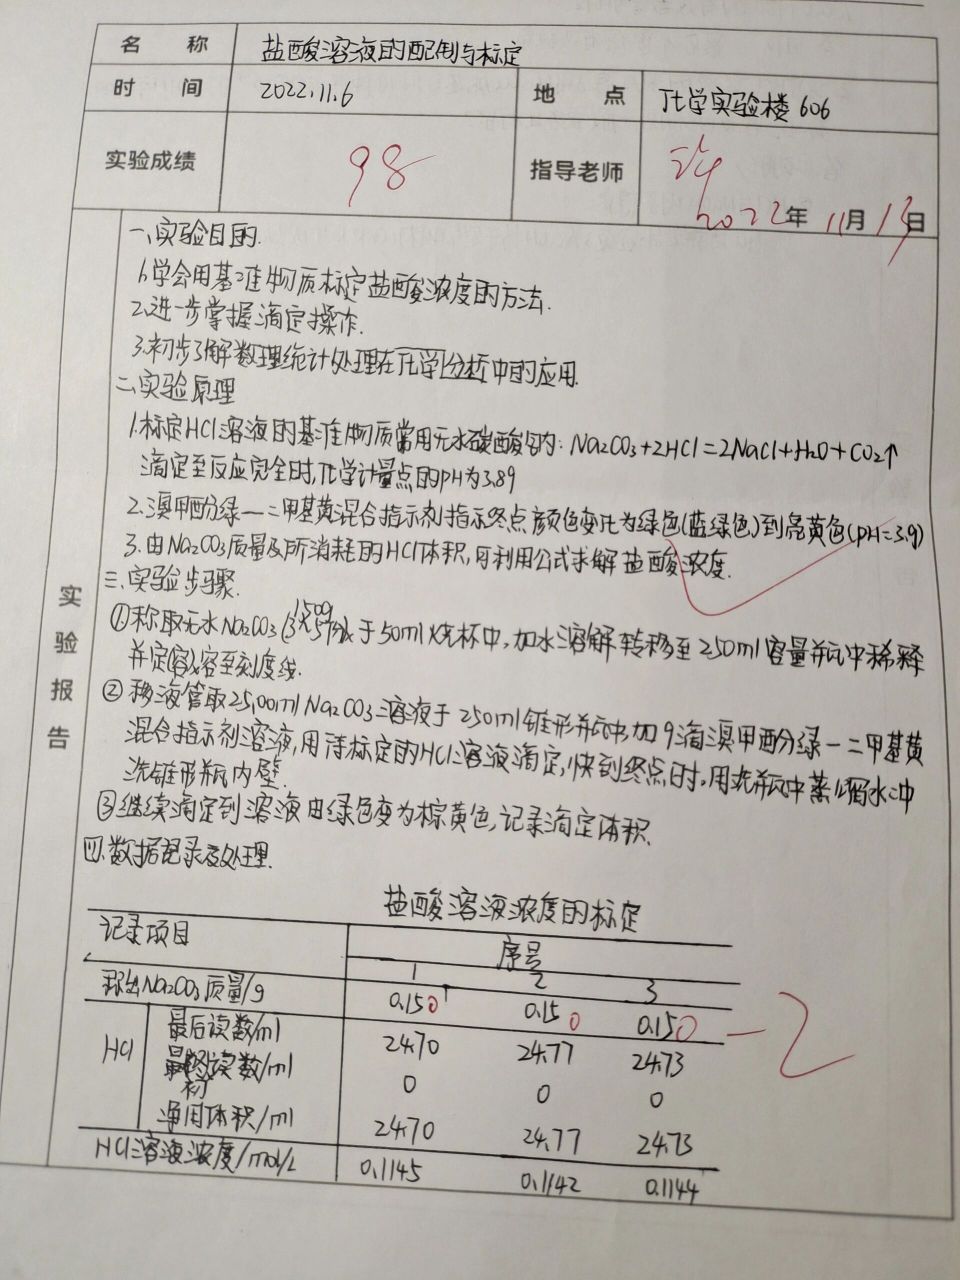 名 称 盐酸溶液的配制与标定
时 间 2022.11.6 地 点 化学实验楼606
实验成绩 98 指导老师 许
2022年11月13日
实验报告
一、实验目的.
1.学会用基准物质标定盐酸浓度的方法.
2.进一步掌握滴定操作.
3.初步了解数理统计处理在化学分析中的应用.
二、实验原理
1.标定HCl溶液的基准物质常用无水碳酸钠: Na₂CO₃+2HCl=2NaCl+H₂O+CO₂↑
滴定至反应完全时,化学计量点的pH为3.89
2.溴甲酚绿一二甲基黄混合指示剂指示终点颜色变化为绿色(蓝绿色)到亮黄色(pH=3.9)
3.由Na₂CO₃质量及所消耗的HCl体积,可利用公式求解盐酸浓度.
三.实验步骤.
①称取无水Na₂CO₃ 1.500g 于50ml烧杯中,加水溶解转移至250ml容量瓶中稀释
并定容至刻度线.
②移液管取25.00ml Na₂CO₃溶液于250ml锥形瓶中,加9滴溴甲酚绿一二甲基黄
混合指示剂溶液,用待标定的HCl溶液滴定,快到终点时,用洗瓶中蒸馏水冲
洗锥形瓶内壁.
③继续滴定到溶液由绿色变为棕黄色,记录滴定体积.
四.数据记录及处理.
盐酸溶液浓度的标定
记录项目 序号
1 2 3
称出Na₂CO₃质量/g 0.150 0.150 0.150
-2
HCl 最后读数/ml 24.70 24.77 24.73
最初读数/ml 0 0 0
净用体积/ml 24.70 24.77 24.73
HCl溶液浓度/mol/L 0.1145 0.1142 0.1144